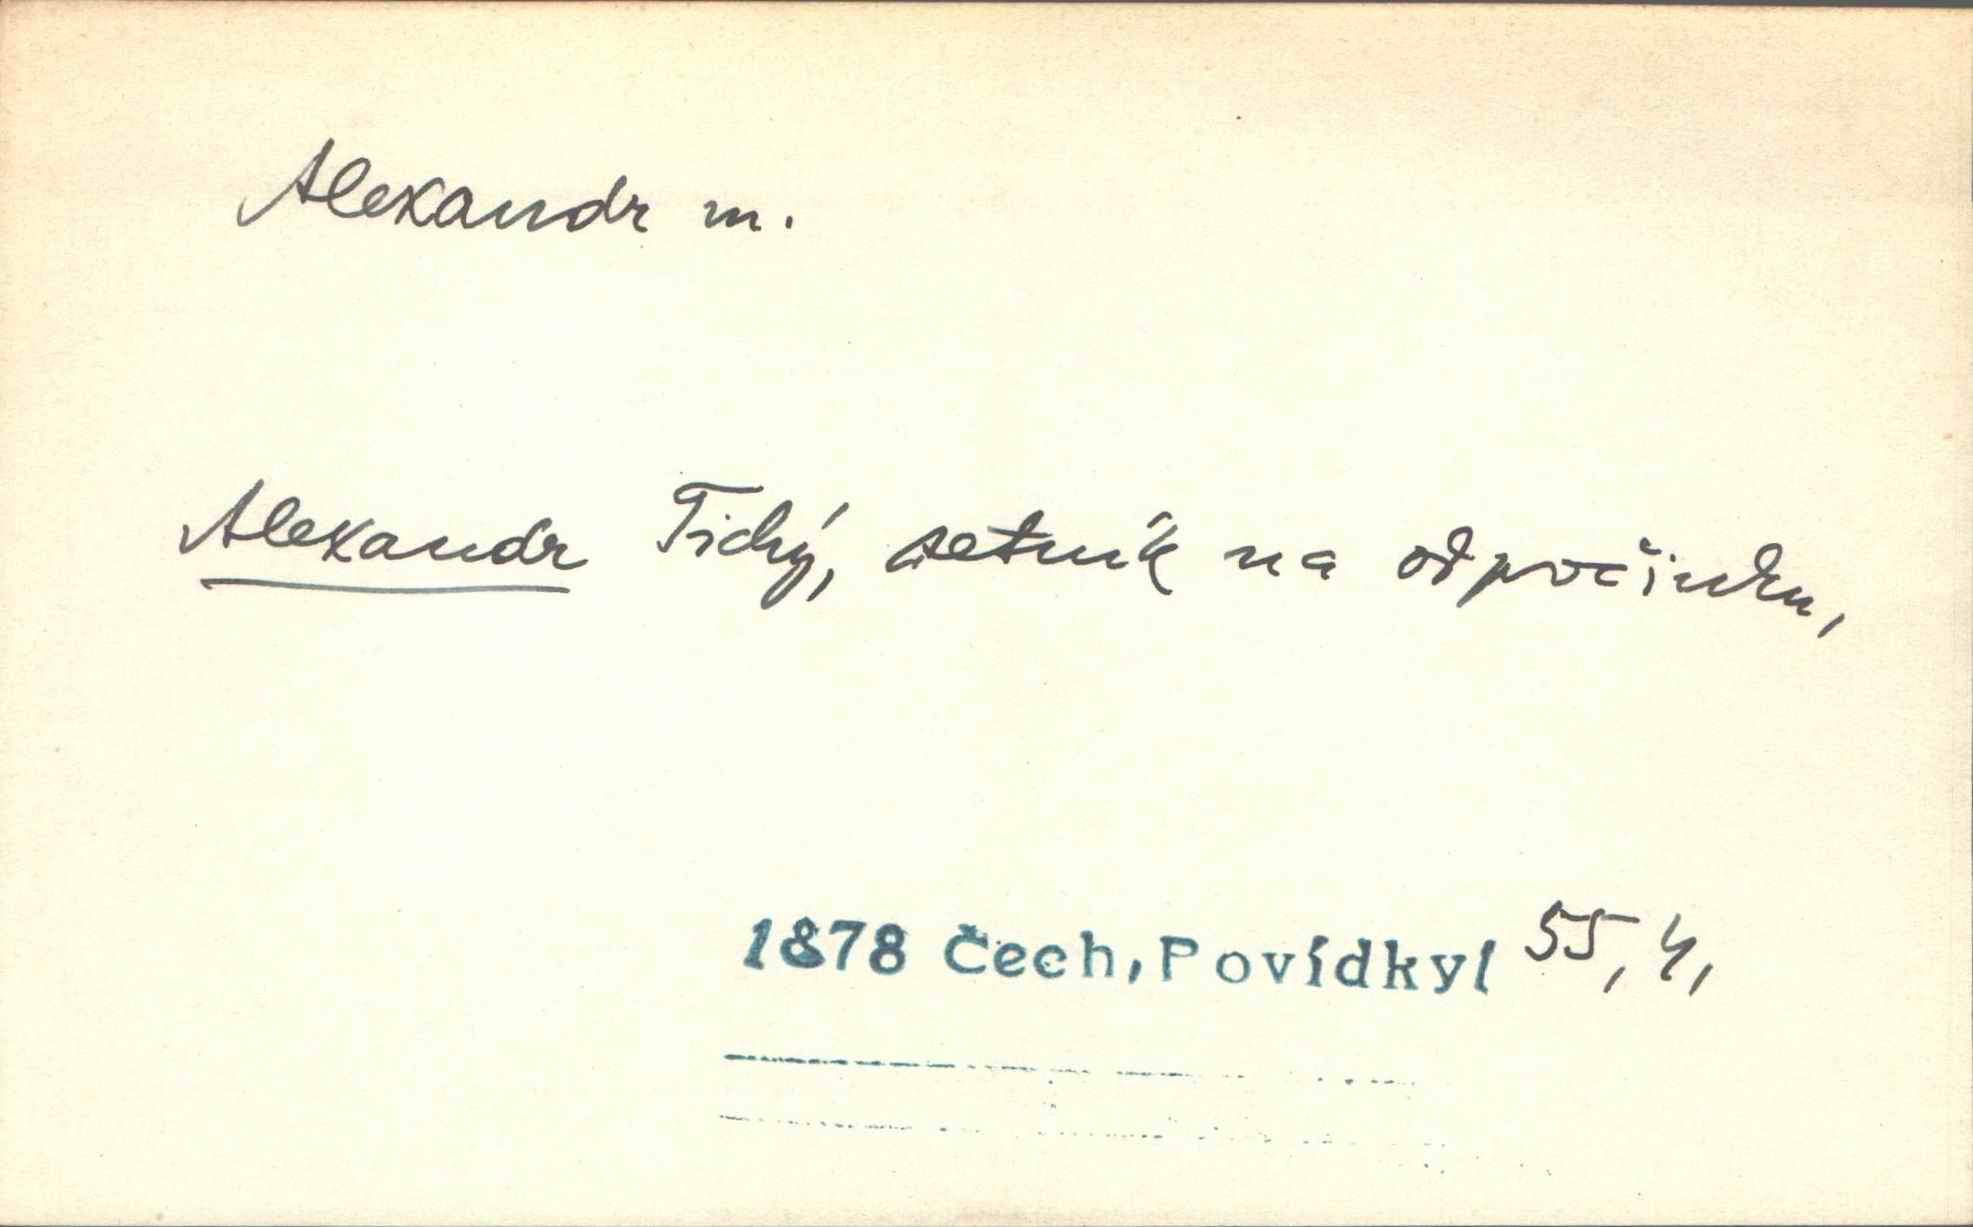 Alexandr m.
Alexandr Tichý, setník na odpočinku,
1878 Čech, Povídky I 55, 4,